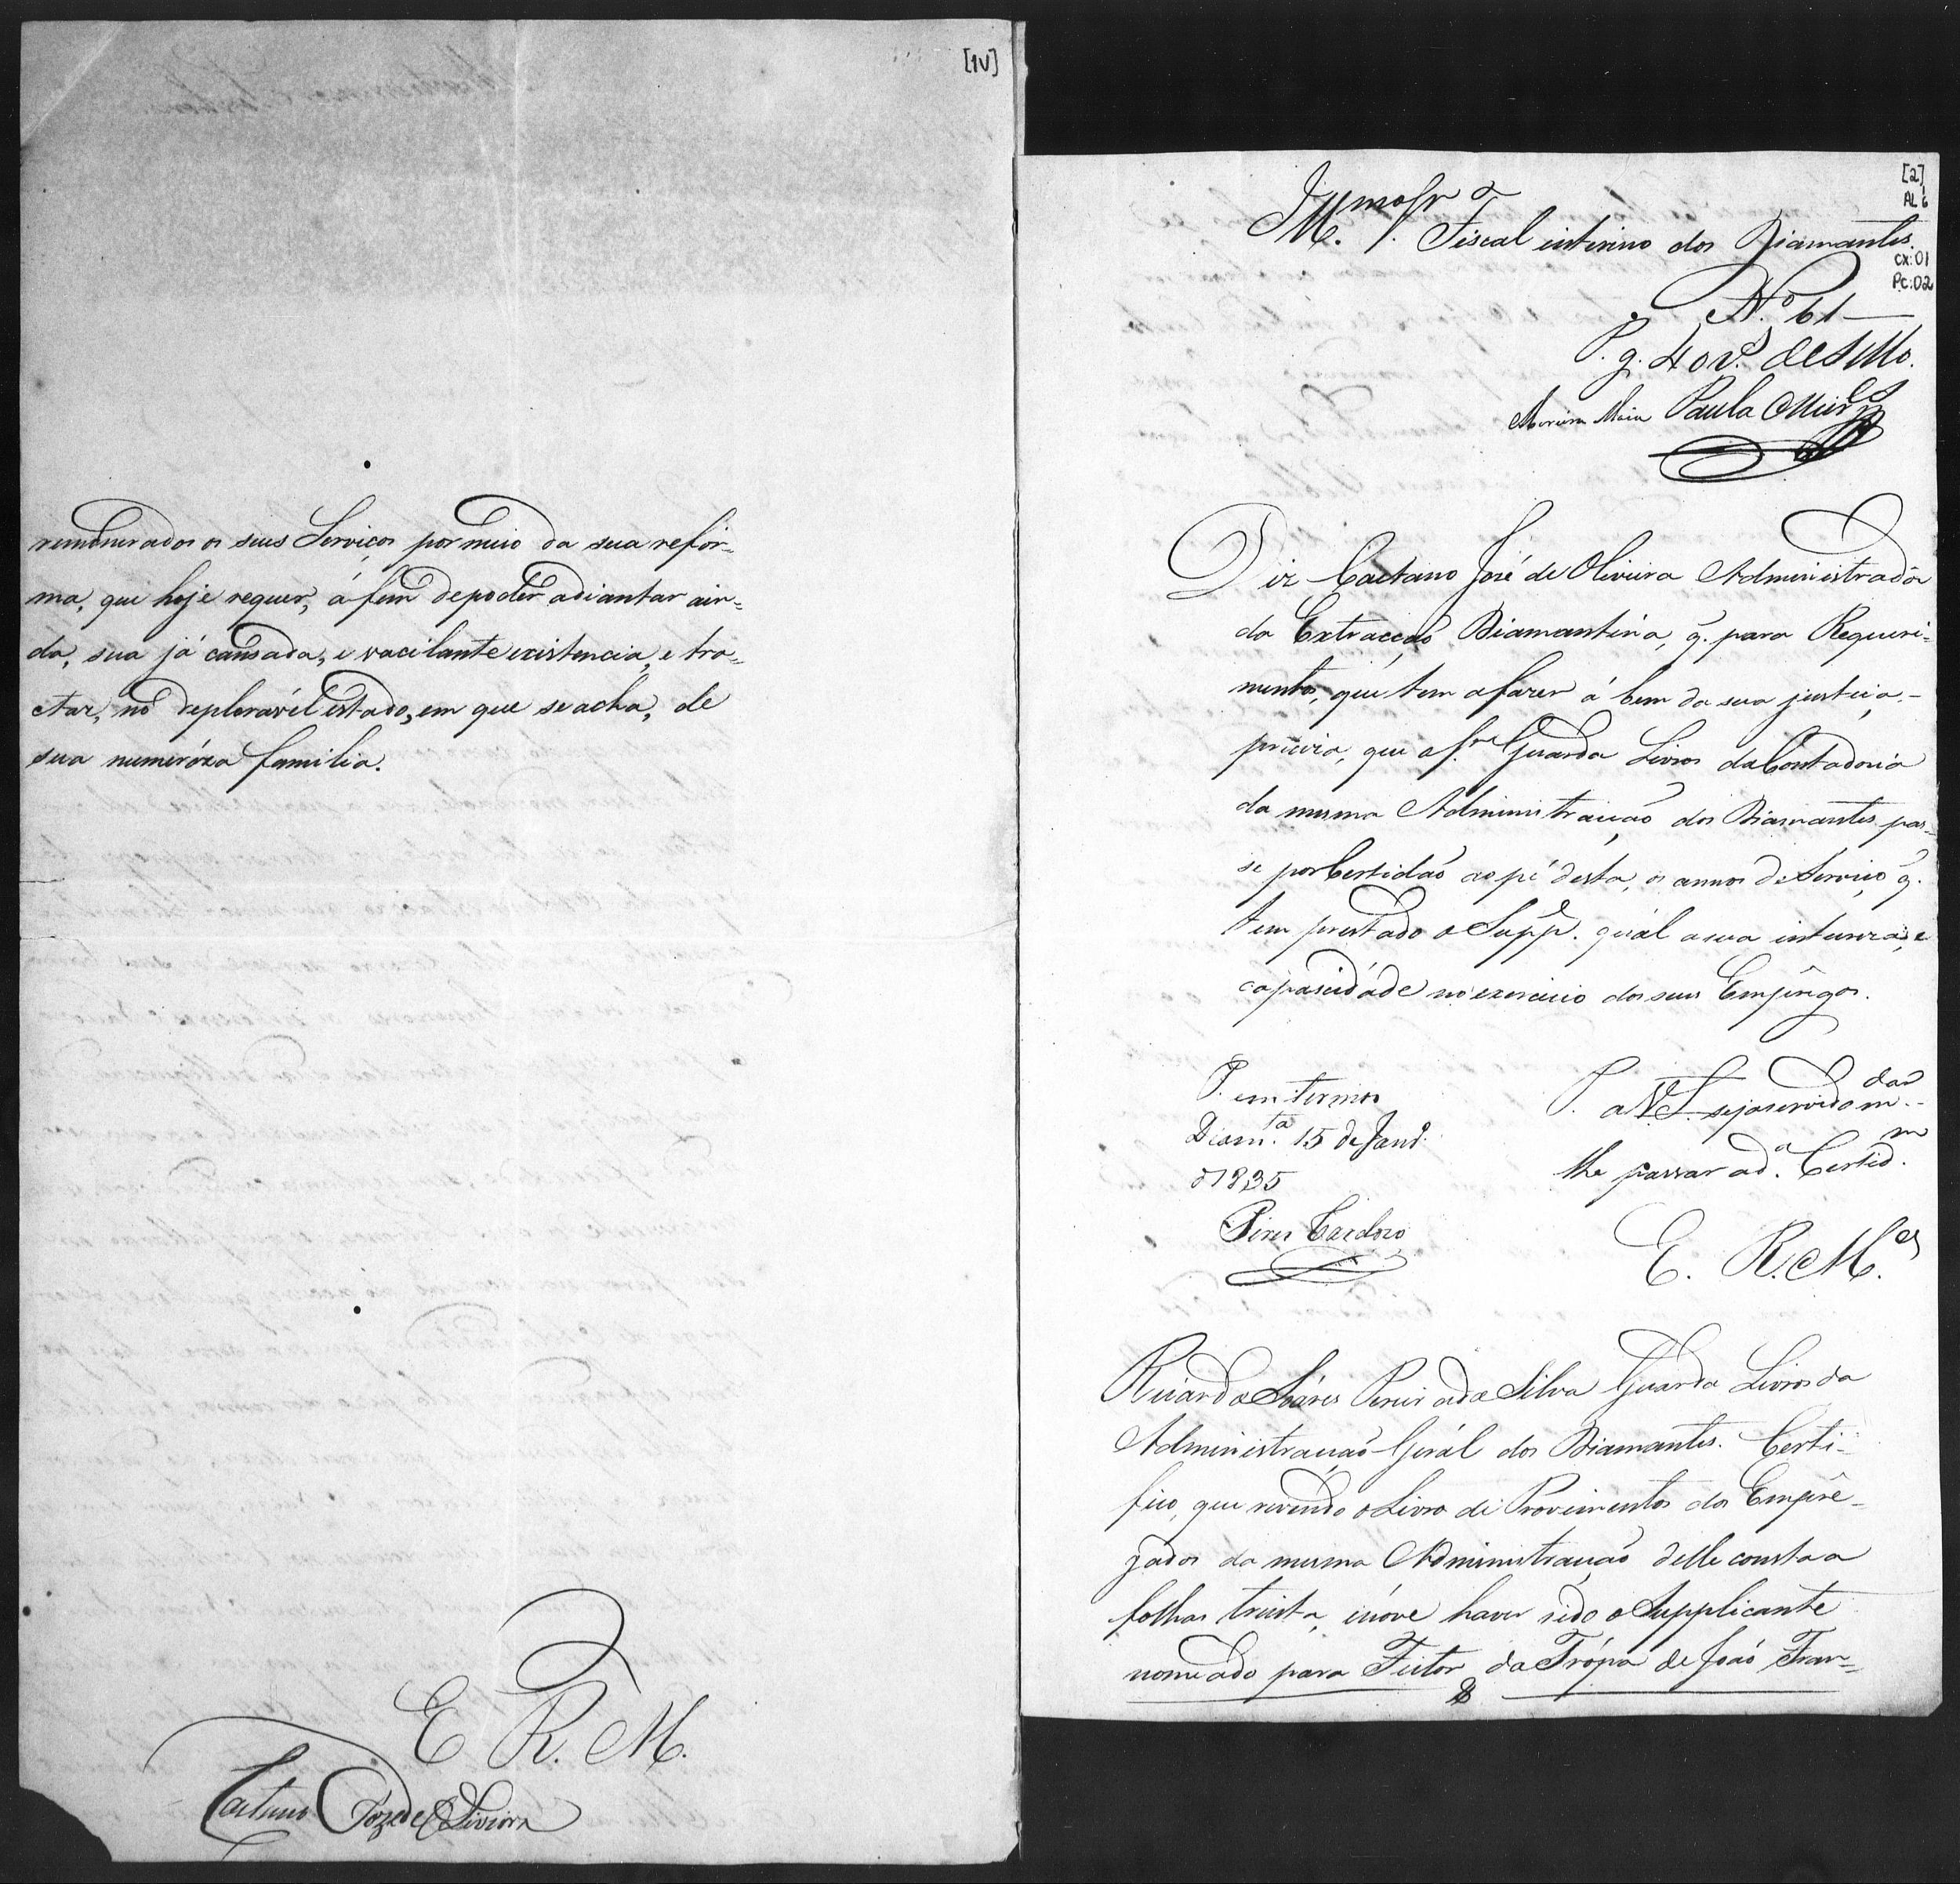 [1V]
remunerados os seus Serviços por meio da sua refor-
ma, que hoje requer, á fim de poder adiantar ain-
da, sua já cansada, e vacilante existencia, e tra-
ctar, no deplorável estado, em que se acha, de
sua numeróza familia.
E. R. M.
Caetano Joze de Oliveira
[2]
AL 6
cx: 01
Pc: 02
Ill.mo Sr. Fiscal interino dos Diamantes.
N.o 61
P. g. 40 rs. de Sello.
Moreira Maia Paula
Diz Caetano José de Oliveira Administradôr
da Extracçaõ Diamantina, q. para Requeri-
mento, que tem afazer á bem da sua justiça,-
preciza, que o Guarda Livros da Contadoria
da mesma Administraçaõ dos Diamantes pas-
se por Certidaõ ao pé desta, os annos de Serviço q.
tem prestado o Supp.e quál a sua inteireza, e
capascidáde no exercicio dos seus Emprêgos.
P. em termos
Diam.ta 15 de Janr.o
d 1835
Pires Cardoso
P. a V. S. seja servido m.dar
lhe passar a d.a Certid.m
E. R. M.ce
Ricardo Soáres Pereira da Silva Guarda Livros da
Administraçaõ Gerál dos Diamantes. Certi-
fico, que revendo o Livro de Provimentos dos Emprê-
gados da mesma Administraçaõ delle consta a
folhas trinta, e nove haver sido o Supplicante
nomeado para Feitor da Trópa de Joaõ Fran-